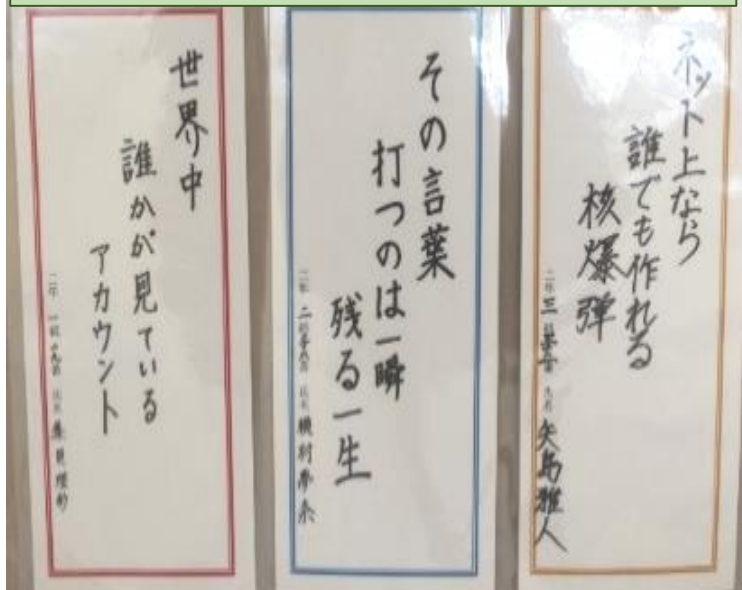 ネット上なら
誰でも作れる
核爆弾
矢島雅人
その言葉
打つのは一瞬
残る一生
世界中
誰かが見ている
アカウント